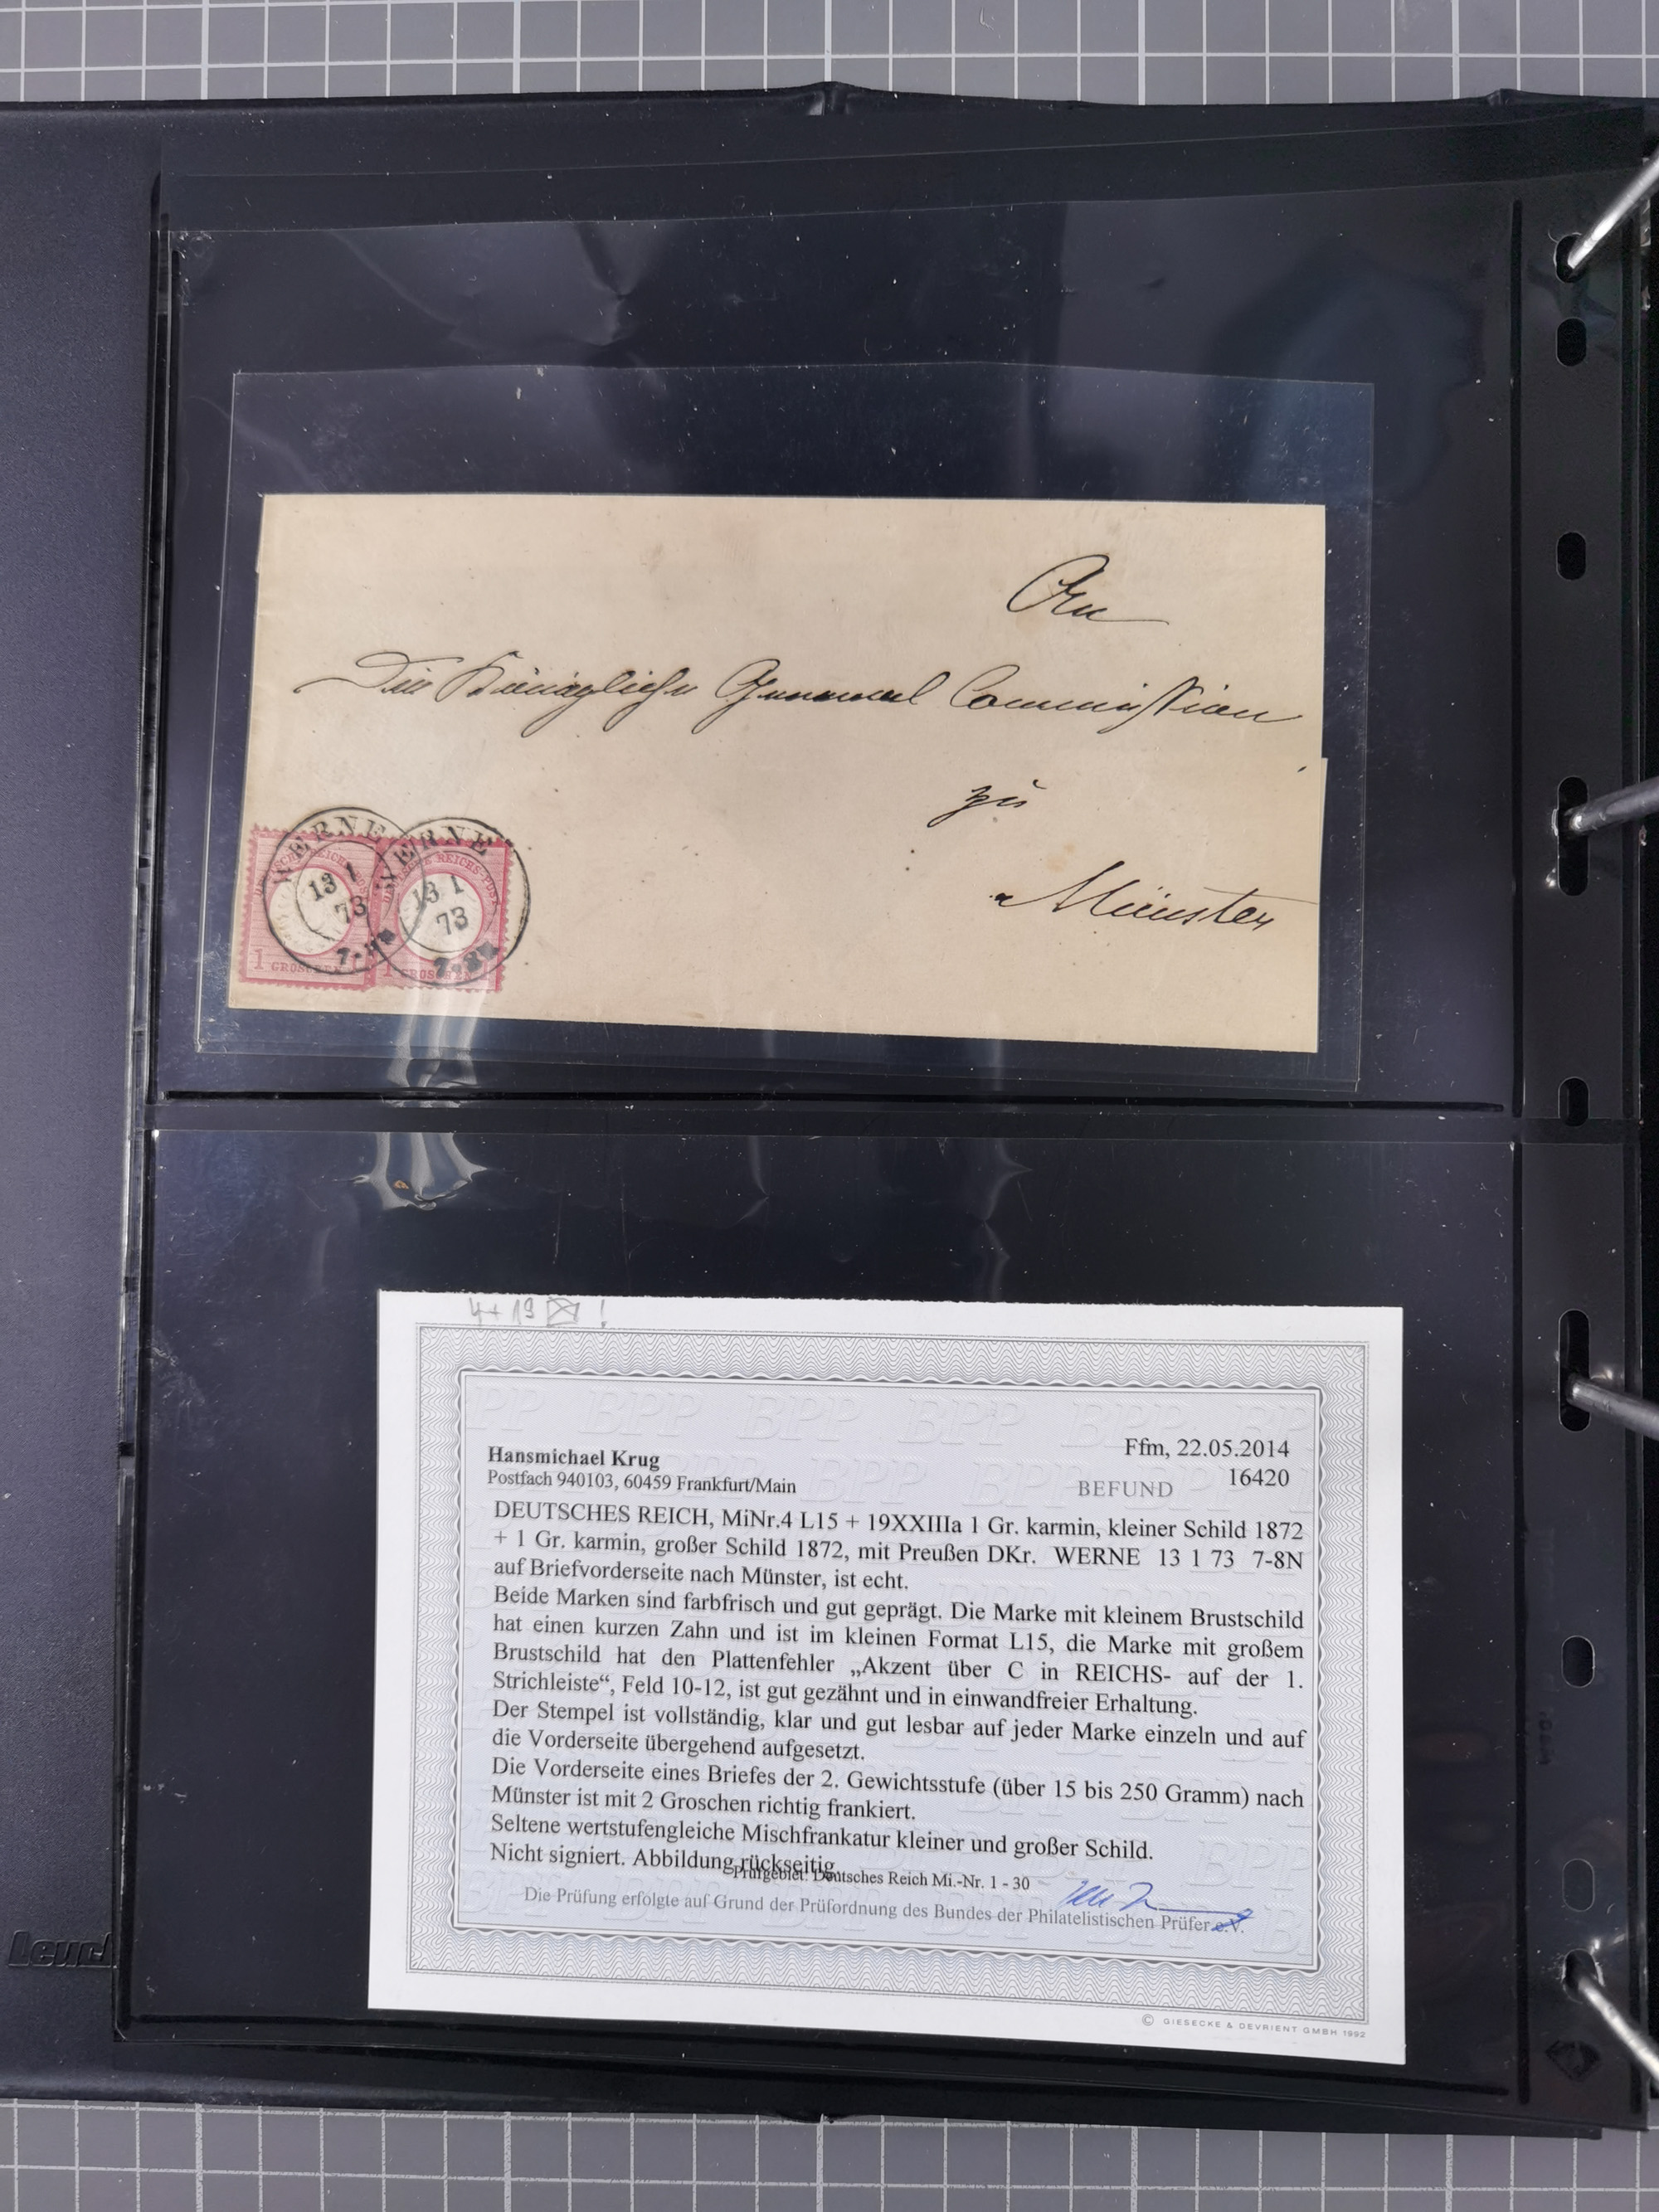 An
Die Königliche General Commission
zu
Münster
WERNE
13 1
73
WERNE
13 1
73
DEUTSCHE REICHS-POST
1 GROSCHEN 1
DEUTSCHE REICHS-POST
1 GROSCHEN 1
4+19 !
BPP BPP BPP BPP BPP
Hansmichael Krug
Postfach 940103, 60459 Frankfurt/Main
Ffm, 22.05.2014
BEFUND 16420
DEUTSCHES REICH, MiNr.4 L15 + 19XXIIIa 1 Gr. karmin, kleiner Schild 1872
+ 1 Gr. karmin, großer Schild 1872, mit Preußen DKr. WERNE 13 1 73 7-8N
auf Briefvorderseite nach Münster, ist echt.
Beide Marken sind farbfrisch und gut geprägt. Die Marke mit kleinem Brustschild
hat einen kurzen Zahn und ist im kleinen Format L15, die Marke mit großem
Brustschild hat den Plattenfehler „Akzent über C in REICHS- auf der 1.
Strichleiste“, Feld 10-12, ist gut gezähnt und in einwandfreier Erhaltung.
Der Stempel ist vollständig, klar und gut lesbar auf jeder Marke einzeln und auf
die Vorderseite übergehend aufgesetzt.
Die Vorderseite eines Briefes der 2. Gewichtsstufe (über 15 bis 250 Gramm) nach
Münster ist mit 2 Groschen richtig frankiert.
Seltene wertstufengleiche Mischfrankatur kleiner und großer Schild.
Nicht signiert. Abbildung rückseitig.
Prüfgebiet: Deutsches Reich Mi.-Nr. 1 - 30
Die Prüfung erfolgte auf Grund der Prüfordnung des Bundes der Philatelistischen Prüfer e.V.
© GIESECKE & DEVRIENT GMBH 1992
Leuch